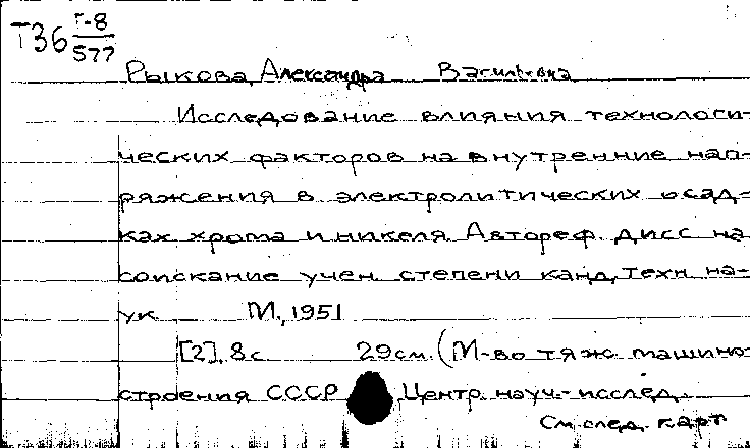 Т36 Г-8
577
Рыкова, Александра Васильевна
Исследование влияния технологи-
ческих факторов на внутренние нап-
ряжения в электролитических осад-
ках хрома и никеля. Автореф. дисс. на
соискание учен. степени канд. техн. на-
ук. М., 1951
[2], 8 с. 29 см. (М-во тяж. машино-
строения СССР. Центр. науч.-исслед.
См. след. карт.